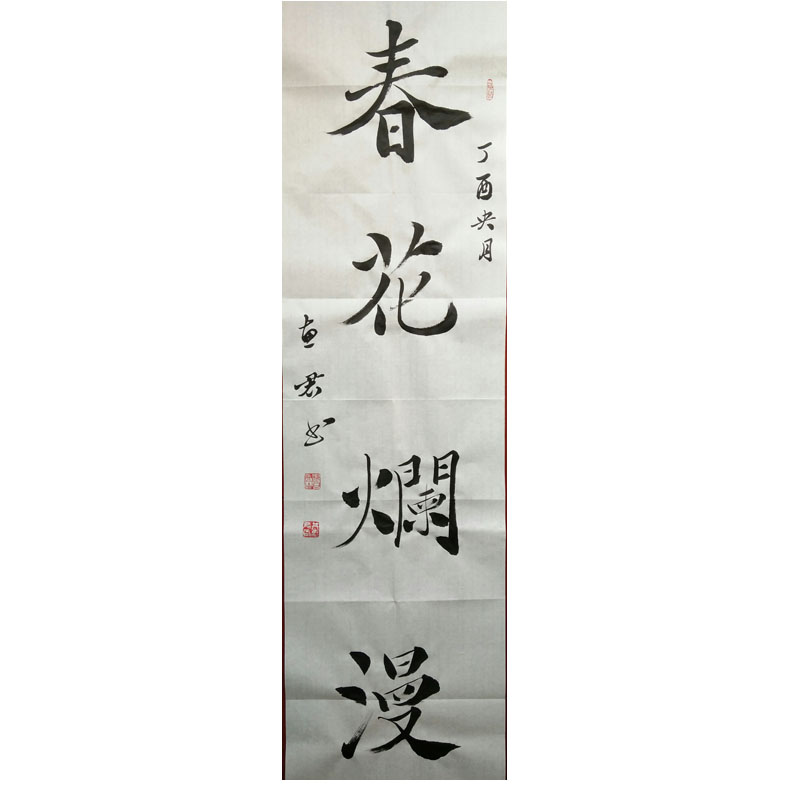 丁酉央月
春花爛漫
惠君书